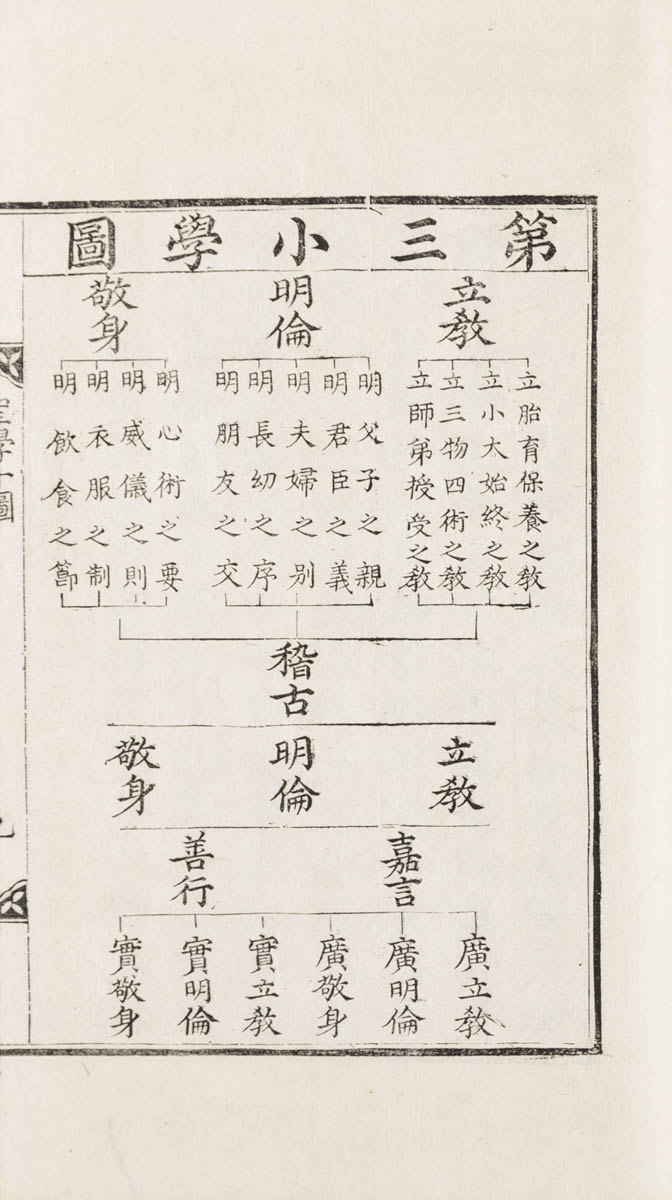 第三小學圖
立敎
明倫
敬身
立胎育保養之敎
立小大始終之敎
立三物四術之敎
立師弟授受之敎
明父子之親
明君臣之義
明夫婦之別
明長幼之序
明朋友之交
明心術之要
明威儀之則
明衣服之制
明飮食之節
稽古
立敎
明倫
敬身
嘉言
善行
廣立敎
廣明倫
廣敬身
實立敎
實明倫
實敬身
聖學十圖